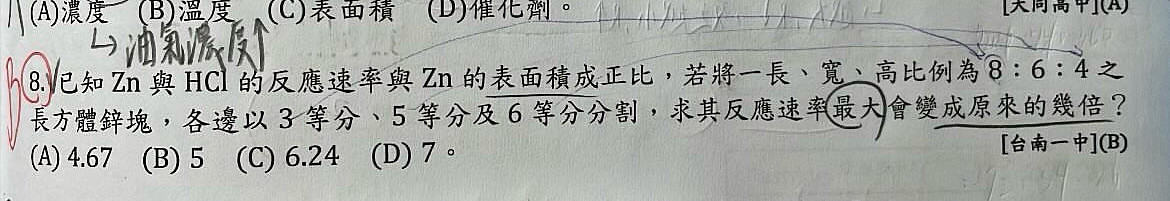 (A)濃度 (B)溫度 (C)表面積 (D)催化劑。 [大同高中](A)
↳油氣濃度↑
8.已知 Zn 與 HCl 的反應速率與 Zn 的表面積成正比,若將一長、寬、高比例為 8:6:4 之
長方體鋅塊,各邊以 3 等分、5 等分及 6 等分分割,求其反應速率最大會變成原來的幾倍?
(A) 4.67 (B) 5 (C) 6.24 (D) 7。 [台南一中](B)